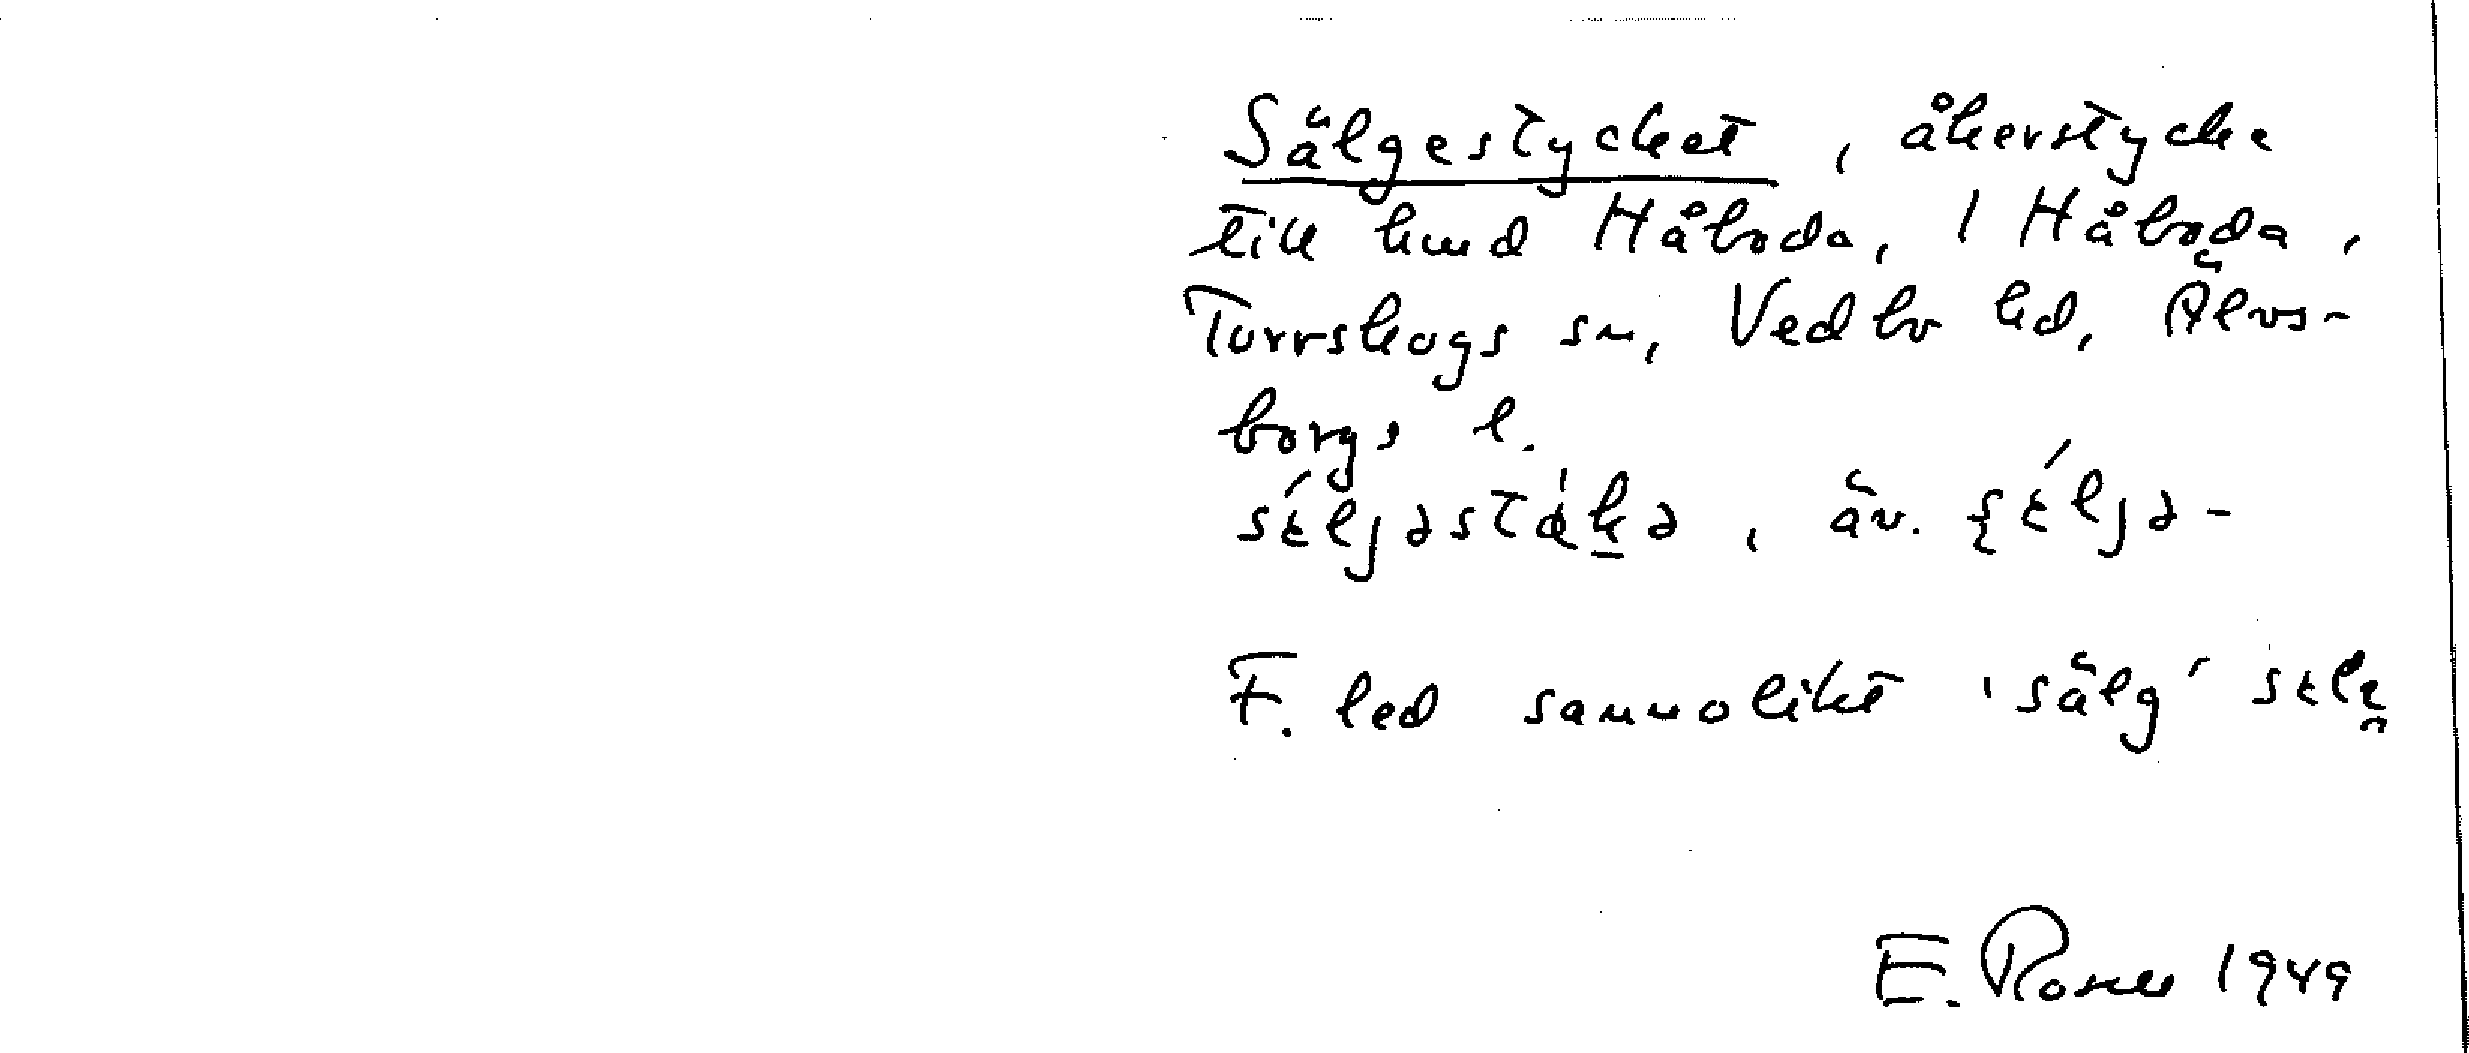 Sälgestycket, åkerstycke
till hmd Håboda, 1 Håboda,
Torrskogs sn, Vedbo hd, Älvs-
borgs l.
sɛ́ljəstỳkə, äv. ʂɛ́ljə-
F. led sannolikt 'sälg' sɛlʐ
E. 1949